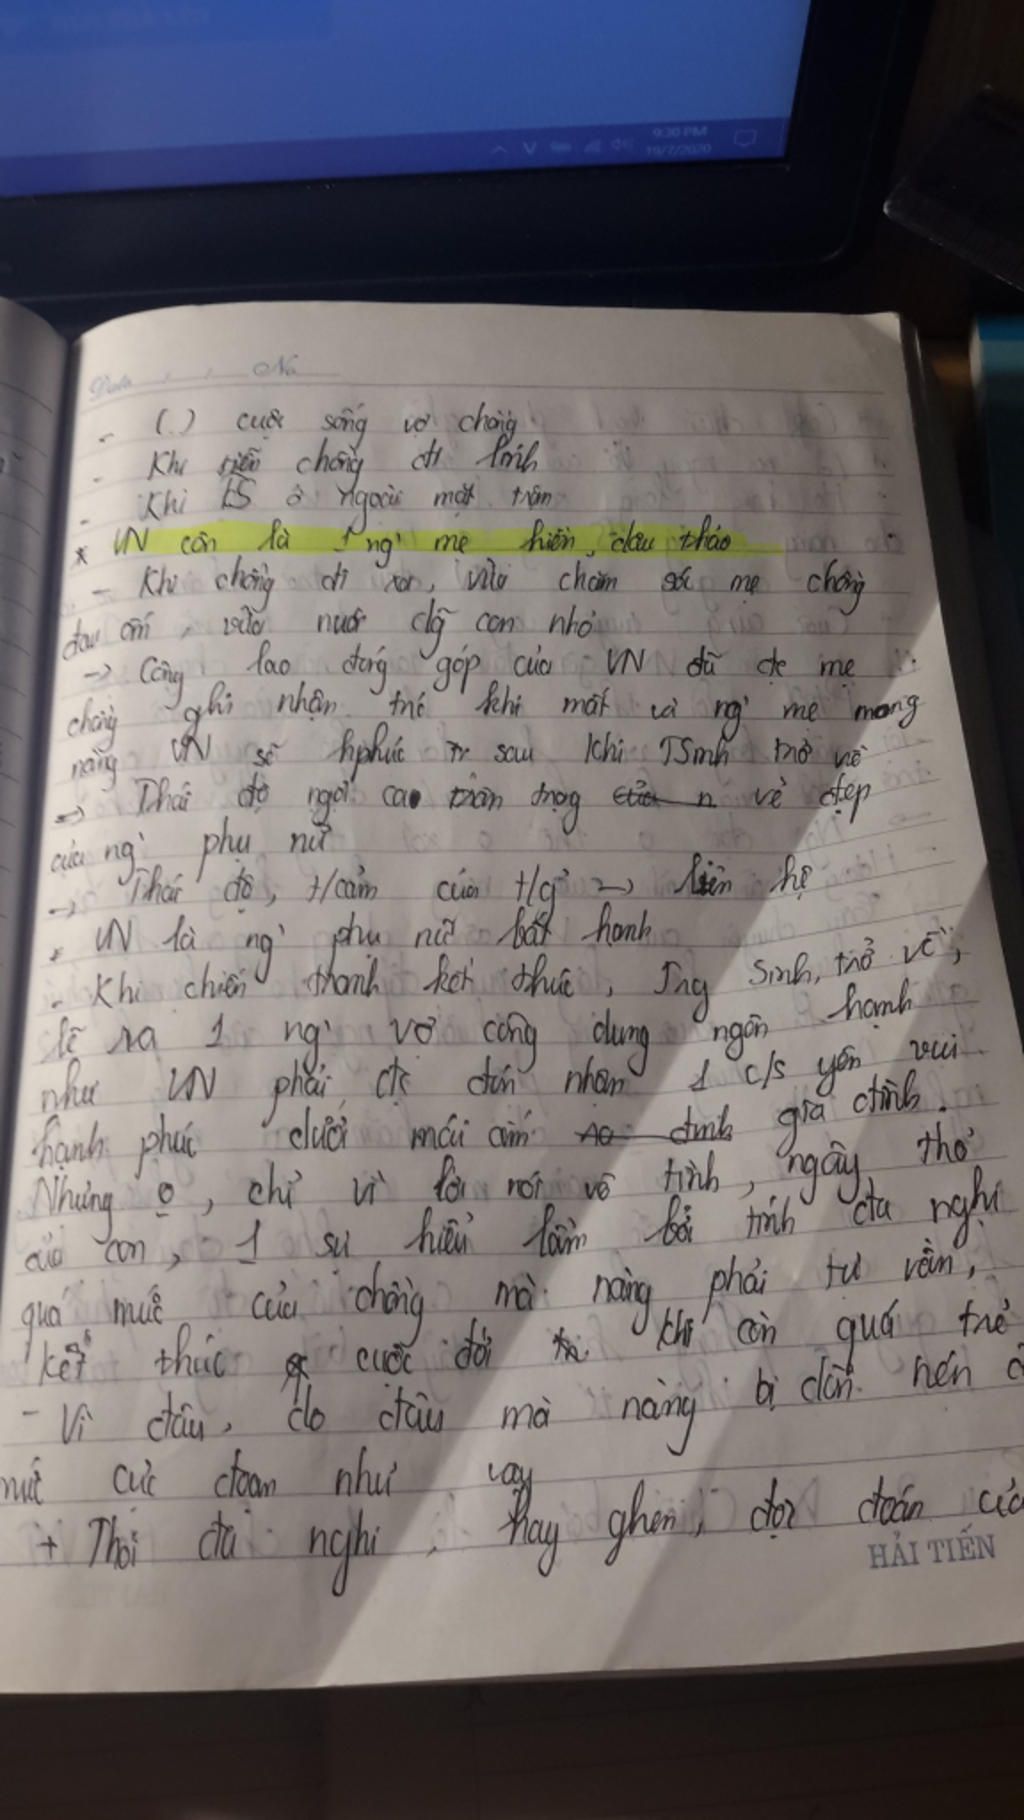 9:30 PM
19/7/2020
Date No
- (.) cuộc sống vợ chồng
- Khi tiễn chồng đi lính
- Khi TS ở ngoài mặt trận
* VN còn là 1 ng' mẹ hiền, dâu thảo
- Khi chồng đi xa, vừa chăm sóc mẹ chồng
đau ốm, vừa nuôi dg̃ con nhỏ
-> Công lao đóng góp của VN đã đc mẹ
chồng ghi nhận trc khi mất và ng' mẹ mong
nàng VN sẽ hphúc sau khi TSinh trở về
=> Thái độ ngợi cao trân trọng vẻ đẹp
của ng' phụ nữ
-> Thái độ, t/cảm của t/g' -> liên hệ
* VN là ng' phụ nữ bất hạnh
- Khi chiến tranh kết thúc, Trg Sinh, trở về,
lẽ ra 1 ng' vợ công dung ngôn hạnh
như VN phải đc đón nhận 1 c/s yên vui
hạnh phúc dưới mái ấm gia đình.
Nhưng o, chỉ vì lời nói vô tình, ngây thơ
của con, 1 sự hiểu lầm bởi tính đa nghi
quá mức của chồng mà nàng phải tự vẫn,
kết thúc cuộc đời khi còn quá trẻ
- Vì đâu, do đâu mà nàng bị dồn nén
mức cực đoan như vậy
+ Thói đa nghi, hay ghen, độc đoán của
HẢI TIẾN